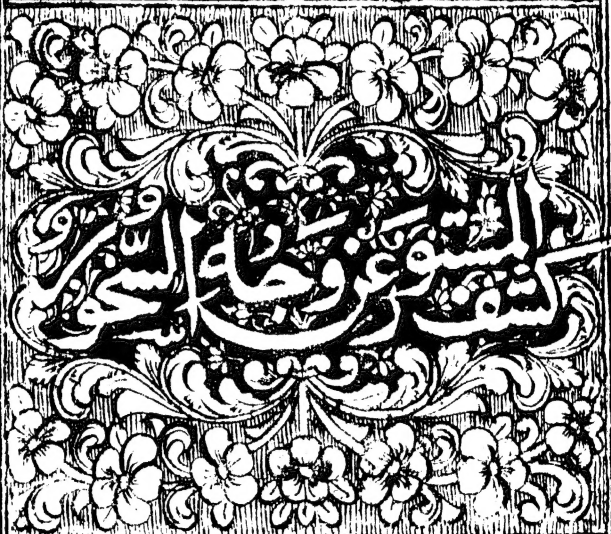 كشف المستور عن وجه السحور